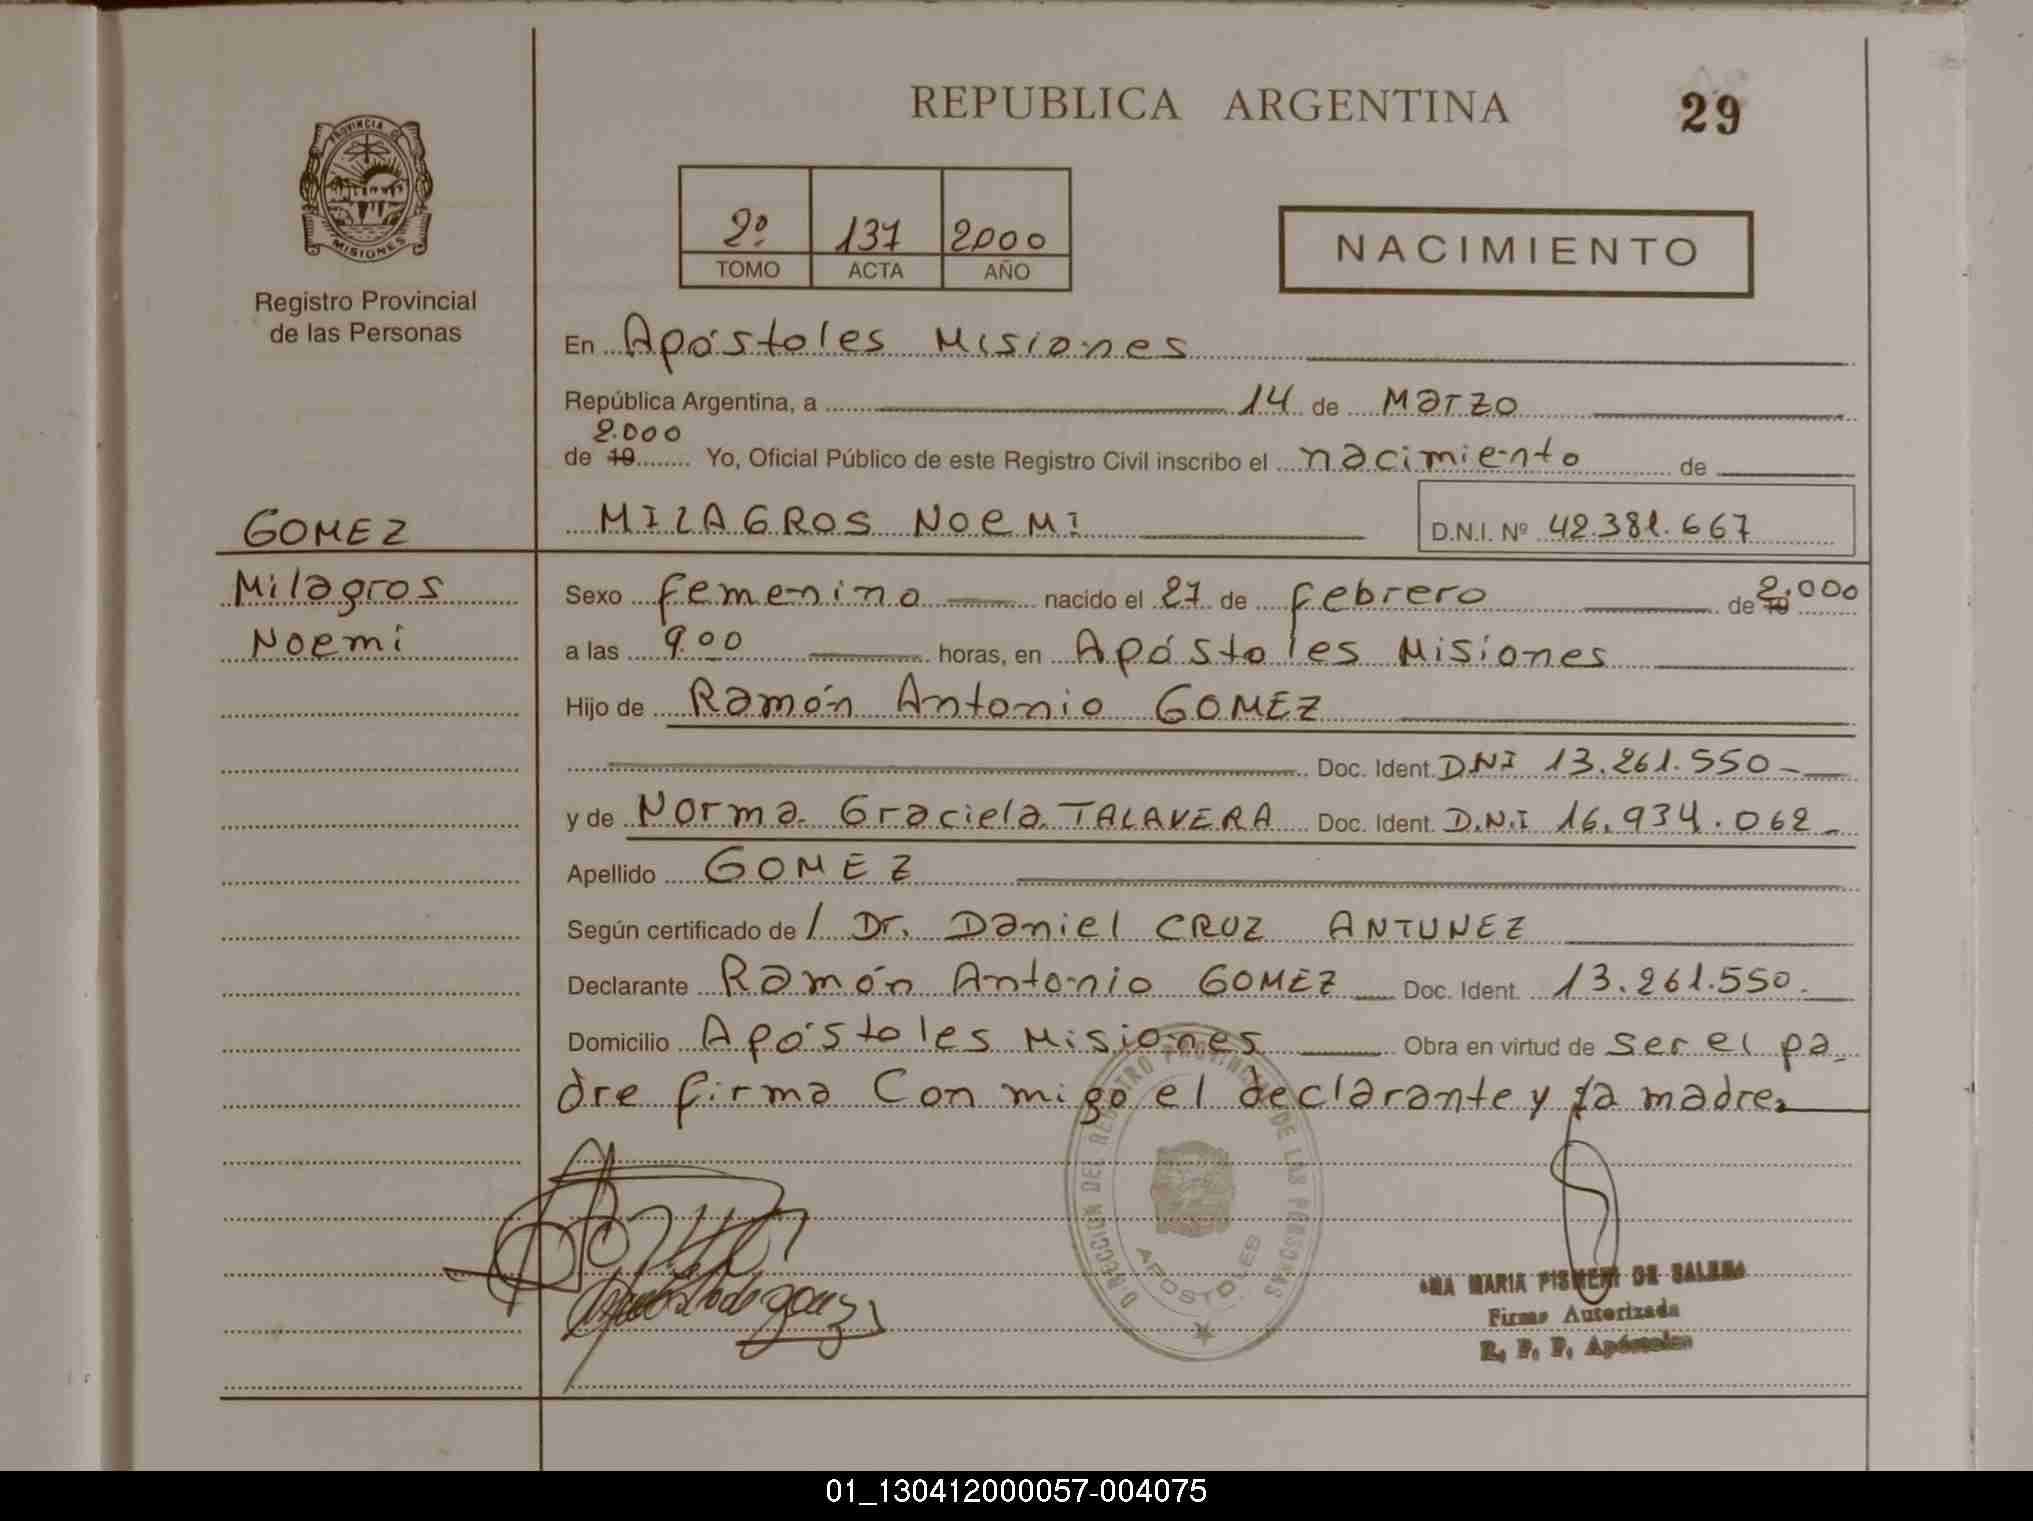 REPUBLICA ARGENTINA
29
PROVINCIA D
MISIONES
Registro Provincial
de las Personas
2º 137 2000
TOMO ACTA AÑO
NACIMIENTO
En Apóstoles Misiones
República Argentina, a 14 de Marzo
2.000
de 19 Yo, Oficial Público de este Registro Civil inscribo el nacimiento de
GOMEZ
MILAGROS NOEMI
D.N.I. Nº 42.381.667
Milagros
Noemi
Sexo femenino nacido el 27 de febrero de 19 2.000
a las 9.00 horas, en Apóstoles Misiones
Hijo de Ramón Antonio GOMEZ
Doc. Ident. DNI 13.261.550-
y de Norma Graciela TALAVERA Doc. Ident. D.N.I 16.934.062-
Apellido GOMEZ
Según certificado de / Dr. Daniel CRUZ ANTUNEZ
Declarante Ramón Antonio GOMEZ Doc. Ident. 13.261.550.
Domicilio Apóstoles Misiones Obra en virtud de ser el pa-
dre firma Con migo el declarante y la madre
DIRECCION DEL REGISTRO PROVINCIAL DE LAS PERSONAS
APOSTOLES
MARIA DE
Firma Autorizada
R. P. P. Apóstoles
01_130412000057-004075